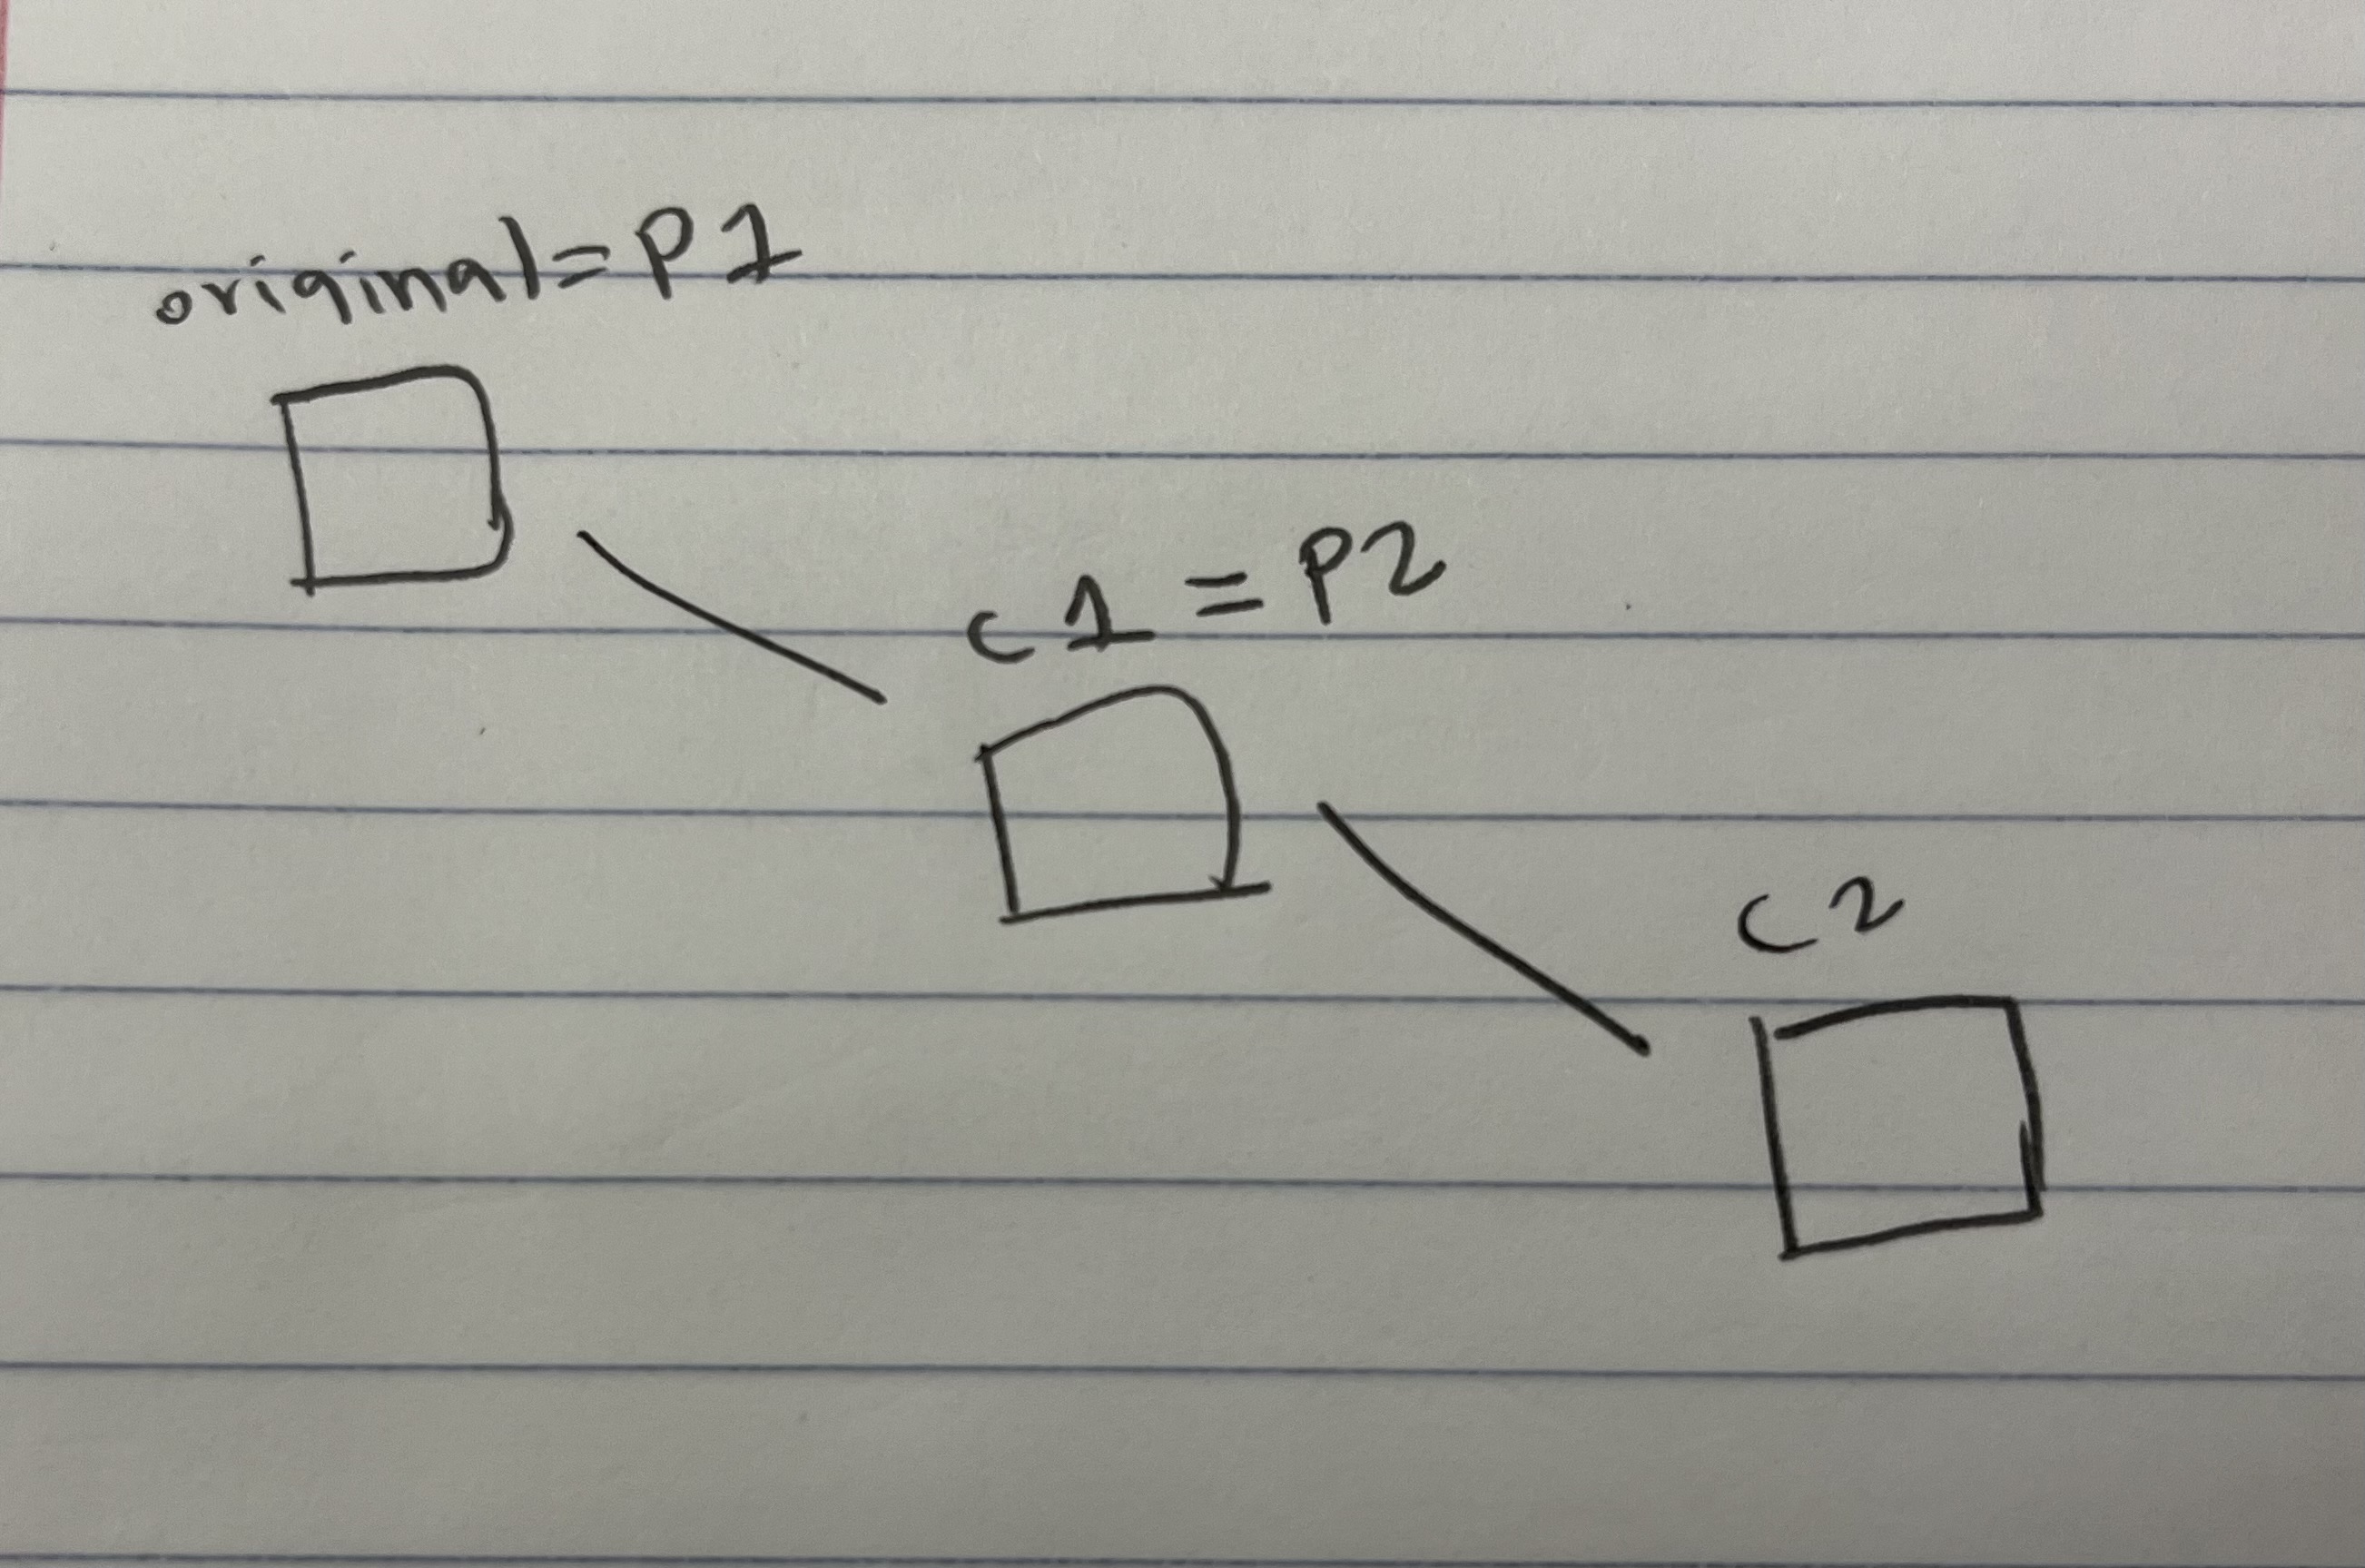 original=P1
c1=P2
c2